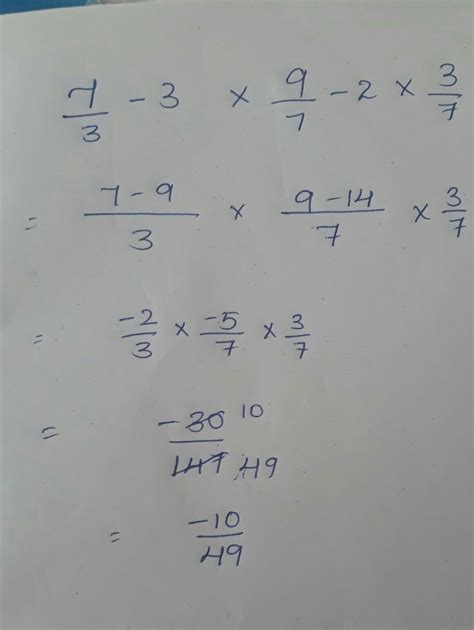 7/3 - 3 × 9/7 - 2 × 3/7
= 7-9/3 × 9-14/7 × 3/7
= -2/3 × -5/7 × 3/7
= -30 10/147 49
= -10/49